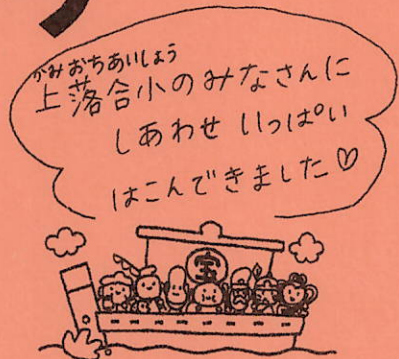 かみおちあいしょう
上落合小のみなさんに
しあわせ いっぱい
はこんできました♡
宝